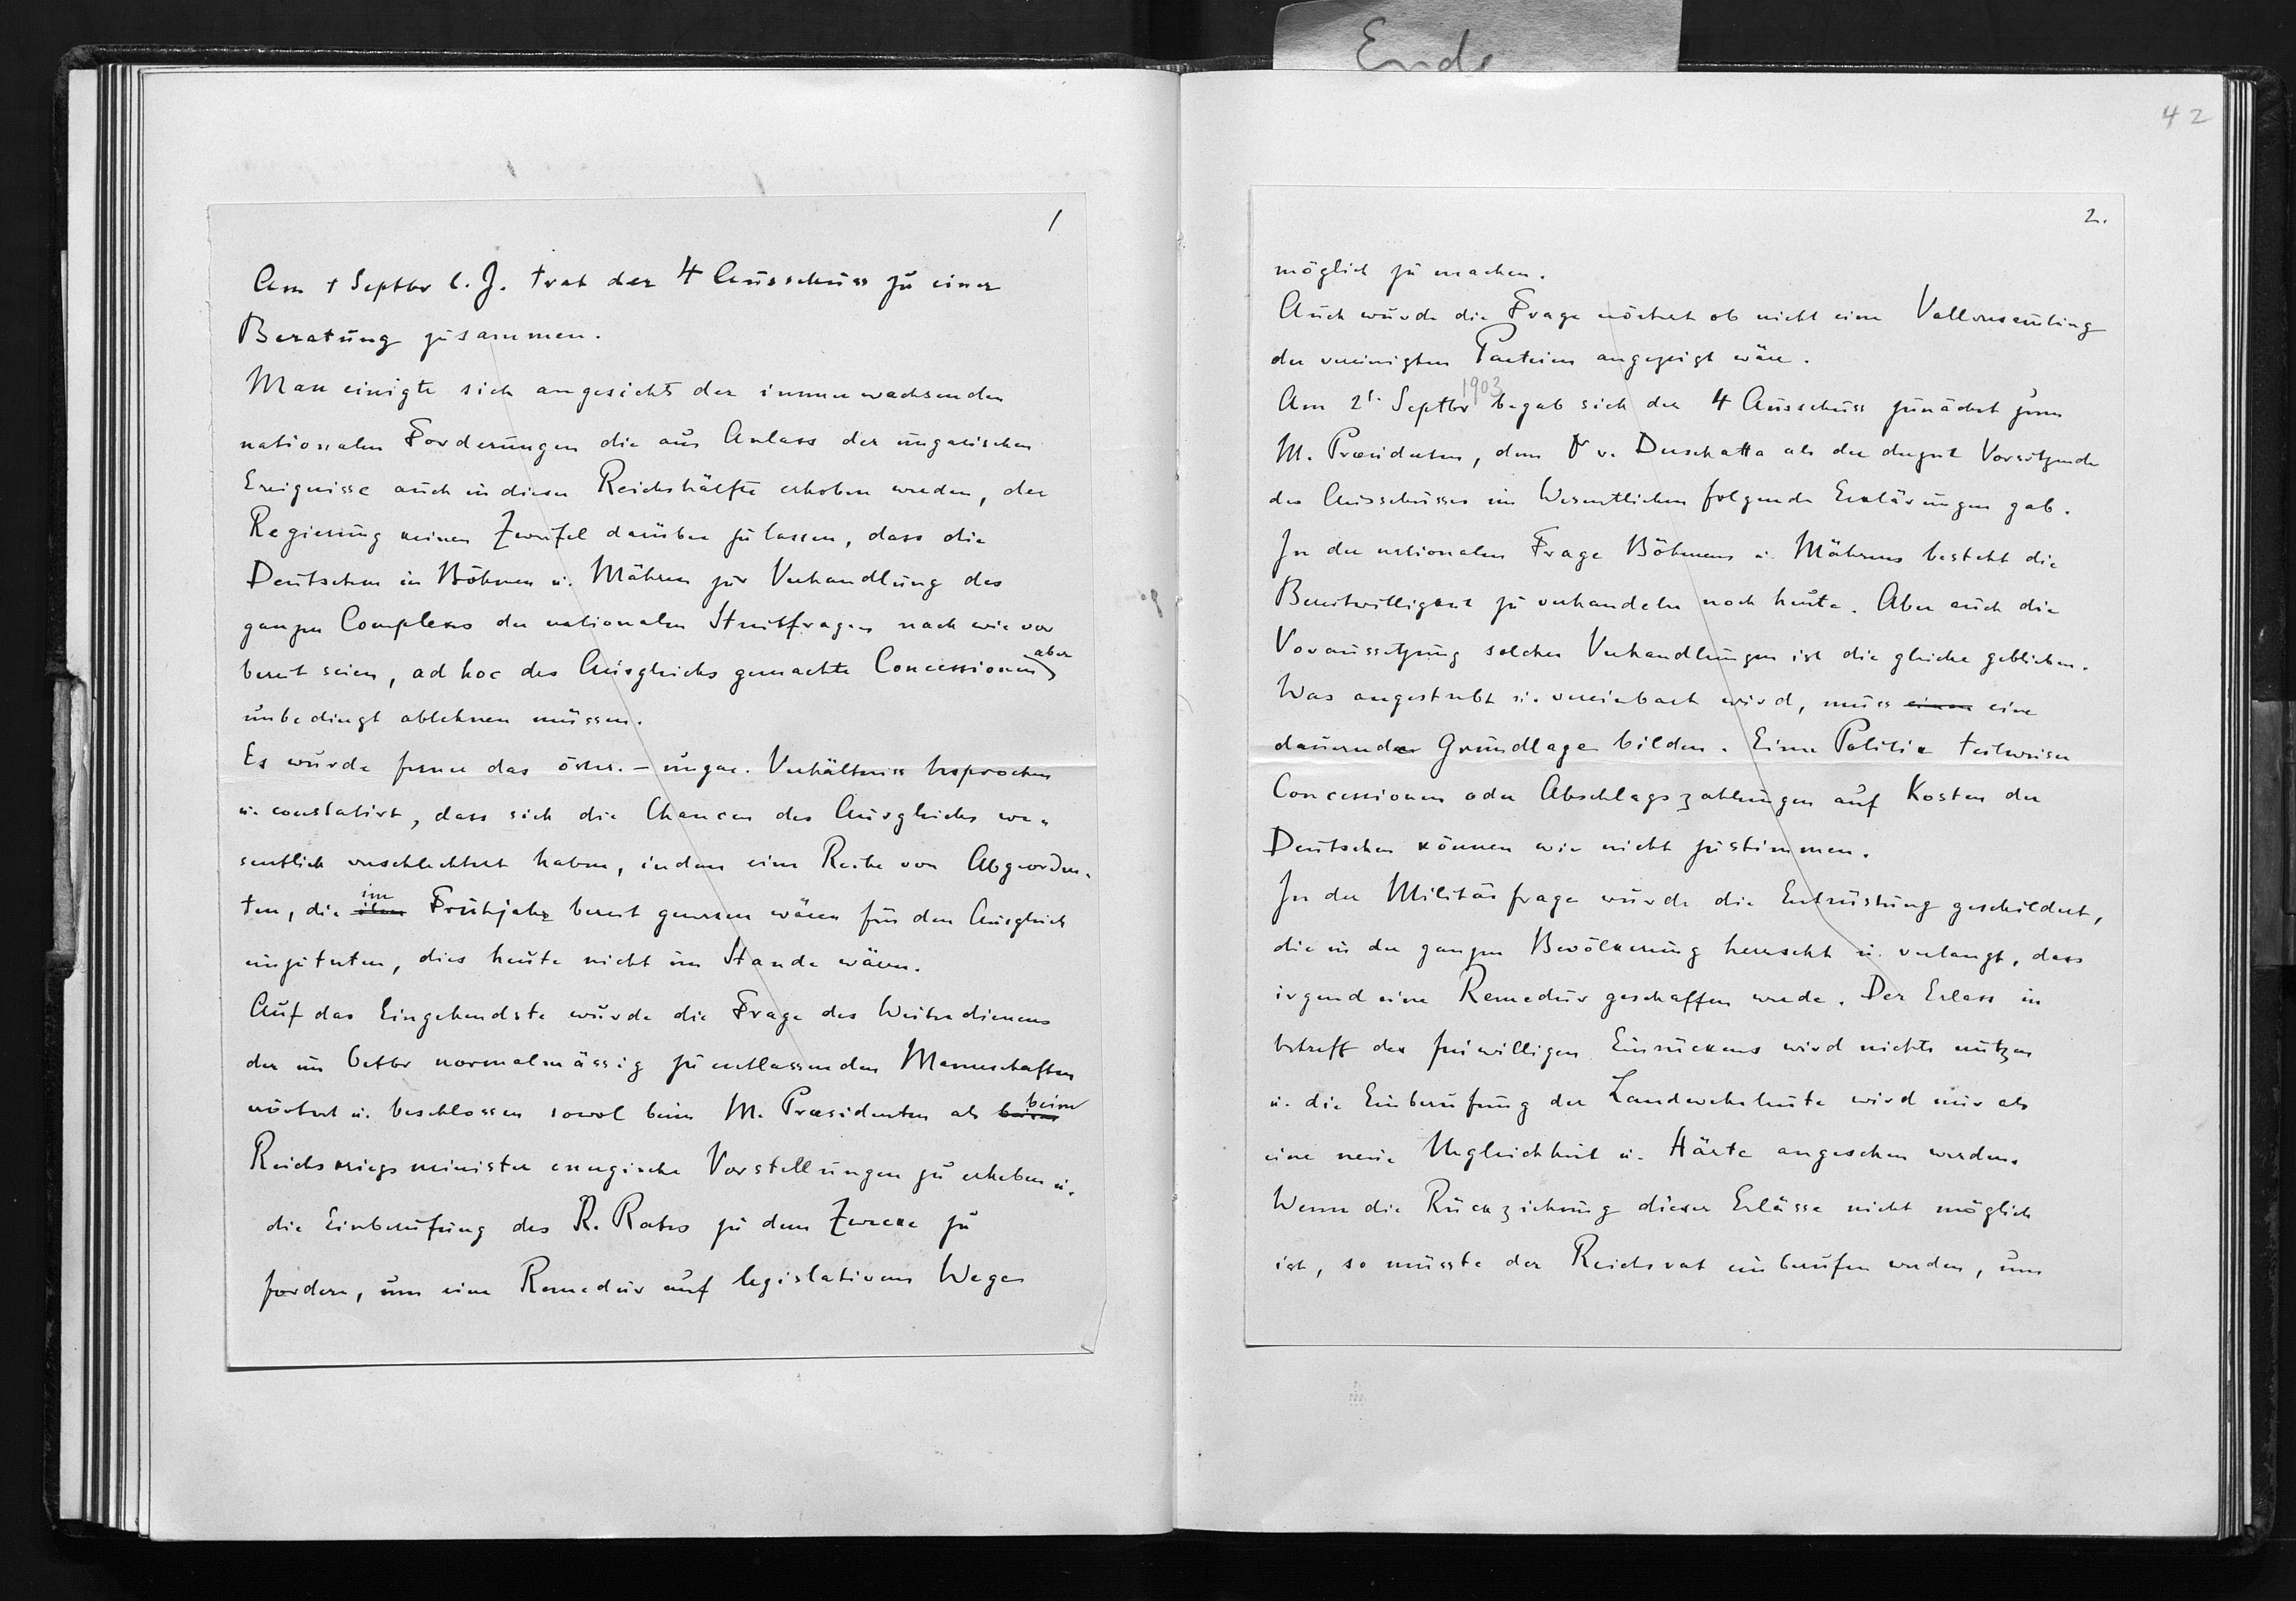 Ende
42
1
Am 1 Septbr l. J. trat der 4 Ausschuss zu einer
Beratung zusammen.
Man einigte sich angesichts der immer wachsenden
nationalen Forderungen die aus Anlass der ungarischen
Ereignisse auch in dieser Reichshälfte erhoben werden, der
Regierung keinen Zweifel darüber zu lassen, dass die
Deutschen in Böhmen u. Mähren zur Verhandlung des
ganzen Complexes der nationalen Streitfragen nach wie vor
bereit seien, ad hoc des Ausgleichs gemachte Concessionen aber
unbedingt ablehnen müssen.
Es wurde ferner das österr. – ungar. Verhältniss besprochen
u. constatirt, dass sich die Chancen des Ausgleichs we-
sentlich verschlechtert haben, indem eine Reihe von Abgeordne-
ten, die im Frühjahr bereit gewesen wären für den Ausgleich
einzutreten, dies heute nicht im Stande wären.
Auf das Eingehendste wurde die Frage des Weiterdienens
der im Octbr normalmässig zu entlassenden Mannschaften
erörtert u. beschlossen sowol beim M. Præsidenten als beim
Reichskriegsminister energische Vorstellungen zu erheben u.
die Einberufung des R. Rates zu dem Zwecke zu
fordern, um eine Remedur auf legislativem Wege
2.
möglich zu machen.
Auch wurde die Frage erörtert ob nicht eine Vollversamlung
der vereinigten Parteien angezeigt wäre.
Am 2t. Septbr 1903 begab sich der 4 Ausschuss zunächst zum
M. Præsidenten, dem Dr v. Derschatta als der derzeit Vorsitzende
des Ausschusses im Wesentlichen folgende Erklärungen gab.
In der nationalen Frage Böhmens u. Mährens besteht die
Bereitwilligkeit zu verhandeln noch heute. Aber auch die
Voraussetzung solcher Verhandlungen ist die gleiche geblieben.
Was angestrebt u. vereinbart wird, muss einen eine
dauernde Grundlage bilden. Einer Politik teilweiser
Concessionen oder Abschlagszahlungen auf Kosten der
Deutschen können wir nicht zustimmen.
In der Militärfrage wurde die Entrüstung geschildert,
die in der ganzen Bevölkerung herrscht u. verlangt, dass
irgend eine Remedur geschaffen werde. Der Erlass in
betreff des freiwilligen Einrückens wird nichts nützen
u. die Einberufung der Landwehrleute wird nur als
eine neue Ungleichheit u. Härte angesehen werden.
Wenn die Rückziehung dieser Erlässe nicht möglich
ist, so müsste der Reichsrat einberufen werden, um